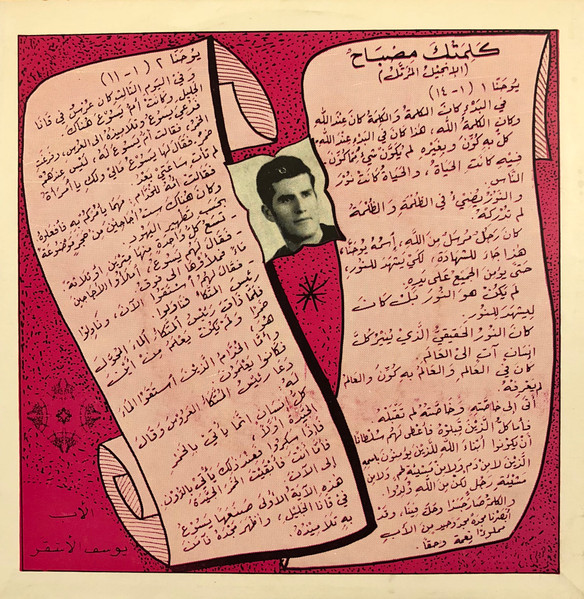 كلمتك مصباح
(الإنجيل المرتّل)
يوحنا ١ (١-١٤)
في البدء كانت الكلمة والكلمة كانت عند الله
وكان الكلمة الله، هذا كان في البدء عند الله
كلٌّ به كوّن وبغيره لم يكوّن شيء مما كوّن
فيه كانت الحياة، والحياة كانت نور
الناس
والنور يضيء في الظلمة والظلمة
لم تدركه.
كان رجل مرسل من الله، اسمه يوحنا،
هذا جاء للشهادة، لكي يشهد للنور،
حتى يؤمن الجميع على يده.
لم يكن هو النور بل كان
ليشهد للنور.
كان النور الحقيقي الذي ينير كل
إنسان آتٍ الى العالم.
كان في العالم والعالم به كوّن والعالم
لم يعرفه.
أتى الى خاصته وخاصته لم تقبله.
فأما كل الذين قبلوه فأعطى لهم سلطانا
أن يكونوا أبناء الله للذين يؤمنون باسمه
الذين لا من دم ولا من مشيئة لحم ولا من
مشيئة رجل لكن من الله ولدوا.
والكلمة صار جسدا وحل فينا، وقد
أبصرنا مجده مجد وحيد من الآب
مملوءا نعمة وحقا.
يوحنا ٢ (١-١١)
وفي اليوم الثالث كان عرس في قانا
الجليل وكانت أم يسوع هناك.
فدعي يسوع وتلاميذه الى العرس، وفرغت
الخمر، فقالت أم يسوع له، ليس عندهم
خمر، فقال لها يسوع مالي ولك يا امرأة؟
لم تأت ساعتي بعد.
فقالت أمه للخدام، مهما يأمركم به فافعلوه
وكان هناك ست أجاجين من حجر موضوعة
بحسب تطهير اليهود.
تسع كل واحدة منها مترين أو ثلاثة.
فقال لهم يسوع، املأوا الأجاجين
ماءً فملأوها الى فوق.
فقال لهم استقوا الآن، وناولوا
رئيس المتكإ فناولوا.
فلما ذاق رئيس المتكإ الماء المحوّل
خمرا، ولم يكن يعلم من أين
هو،
وأما الخدام الذين استقوا الماء
فكانوا يعلمون.
دعا رئيس المتكإ العروس وقال
له:
كل إنسان إنما يأتي بالخمر
الجيدة أولا،
فإذا سكروا فعند ذلك يأتي بالدون
فأما أنت فأبقيت الخمر الجيدة
إلى الآن.
هذه الآية الأولى صنعها يسوع
في قانا الجليل، وأظهر مجده فآمن
به تلاميذه.
الأب
يوسف الأشقر